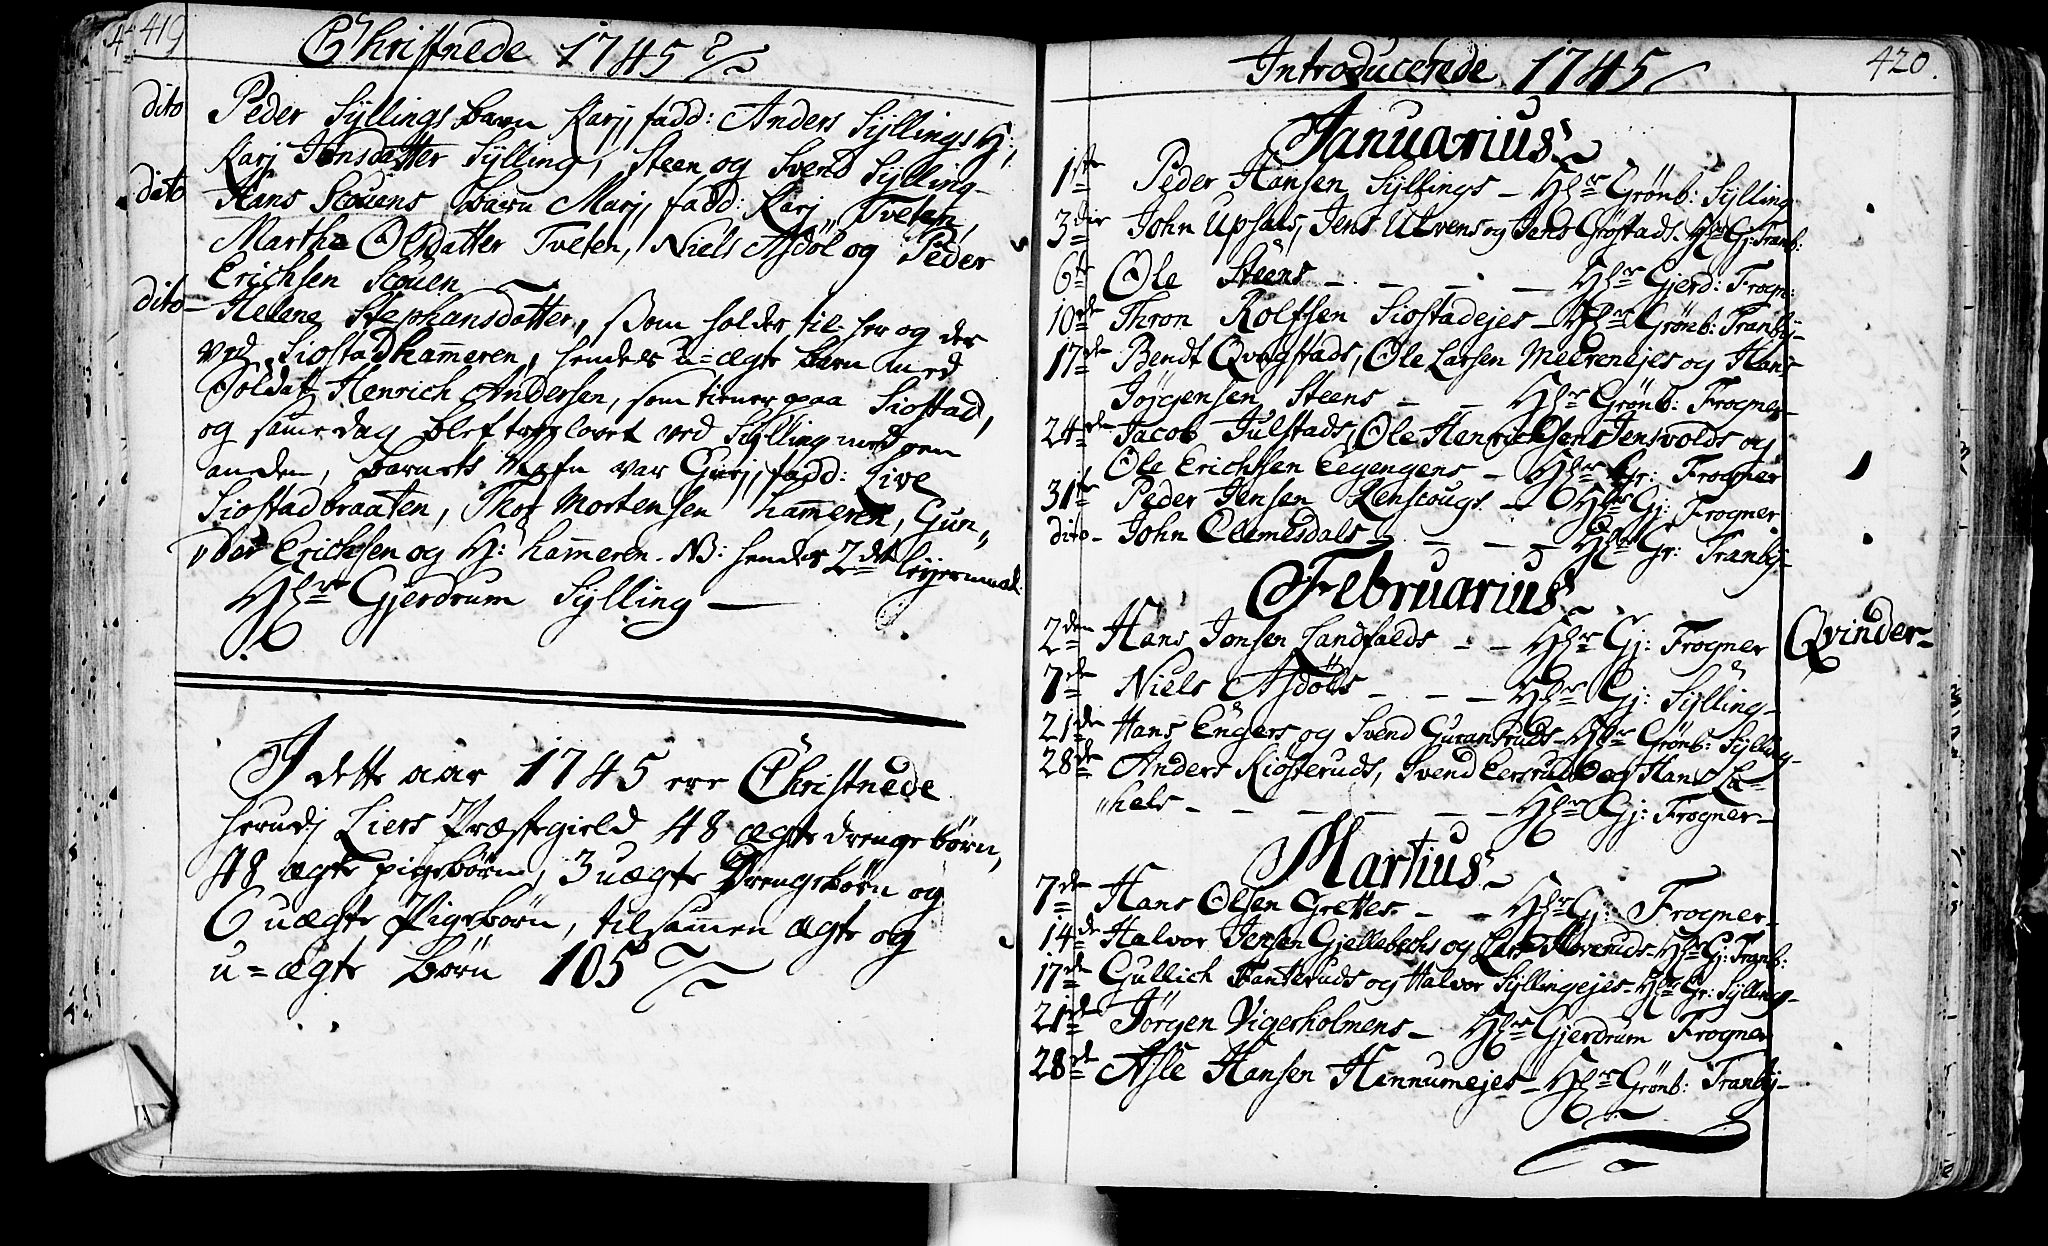 419
Christnede 1745
dito Peder Syllings barn Karj, fadd: Anders Syllings H:,
Karj Jonsdatter Sylling, Steen og Svend Sylling-
dito Hans Scouens barn Marj, fadd: Karj Tveten,
Martha Olsdatter Tveten, Niels Asdøl og Peder
Erichsen Scouen
dito- Helena Stephansdatter, som holder til her og der
ved Siostadhameren, hendes u=ægte barn med
Soldat Henrich Andersen, som tiener paa Siostad,
og same dag blef troelovet ved Sylling med en
anden, barnets Nafn var Gurj, fadd: Live
Siostadbraaten, Thor Mortensen hameren, Gun„
„bor Erichsen og H: hameren. NB: hendes 2det leyermaal.
Hr Gjerdrum Sylling —
I dette aar 1745 ere Christnede
herudj Liers Præstegield 48 ægte drenge børn,
48 ægte pigebørn, 3 uægte Drengebørn og
6 uægte Pigebørn, tilsamen ægte og
u=ægte børn 105
420.
Introducerede 1745
Januarius
1ste Peder Hansen Syllings - Hr Grønb: Sylling
3die John Upsals, Jens Ulvens og Jens Grøstads. Hr Gj: Tranb:
6te Ole Steens - - - - Hr Gjerd: Frogn:
10de Thron Rolfsen Siostadejes - Hr Grønb: Tranby-
17de Bendt Qvegstads, Ole Larsen Meerenejes og Hans
Jørgensen Steens - - Hr Grønb: Frogner-
24de Jacob Julstads, Ole Henrichsens Jensvolds og
Ole Erichsen Eegengens - Hr Gr: Frogner
31te Peder Jensen Lenscougs. - Hr Gj: Frogner
dito- John Clemesdals - - - - Hr Gr: Tranby-
Februarius
2den Hans Jonsen Landfalds - - Hr Gj: Frogner Qvinder-
7de Niels Asdøls - - - Hr Gj: Sylling-
21de Hans Engers og Svend Guransruds - Hr Grønb: Sylling-
28de Anders Kiosteruds, Svend Eersruds og Hans La-
„hels - - - - - - Hr Gj: Frogner-
Martius
7de Hans Olsen Grettes. - - Hr Gj: Frogner-
14de Halvor Jensen Gjellebechs og Lars Hvreruds - Hr Gj: Tranb:
17de Gullich Fanteruds og Halvor Syllingejes - Hr Gr: Sylling-
21de Jørgen Vigerholmens - Hr Gjerdrum Frogner
28de Asle Hansen Hennumejes - Hr Grønb: Tranby-